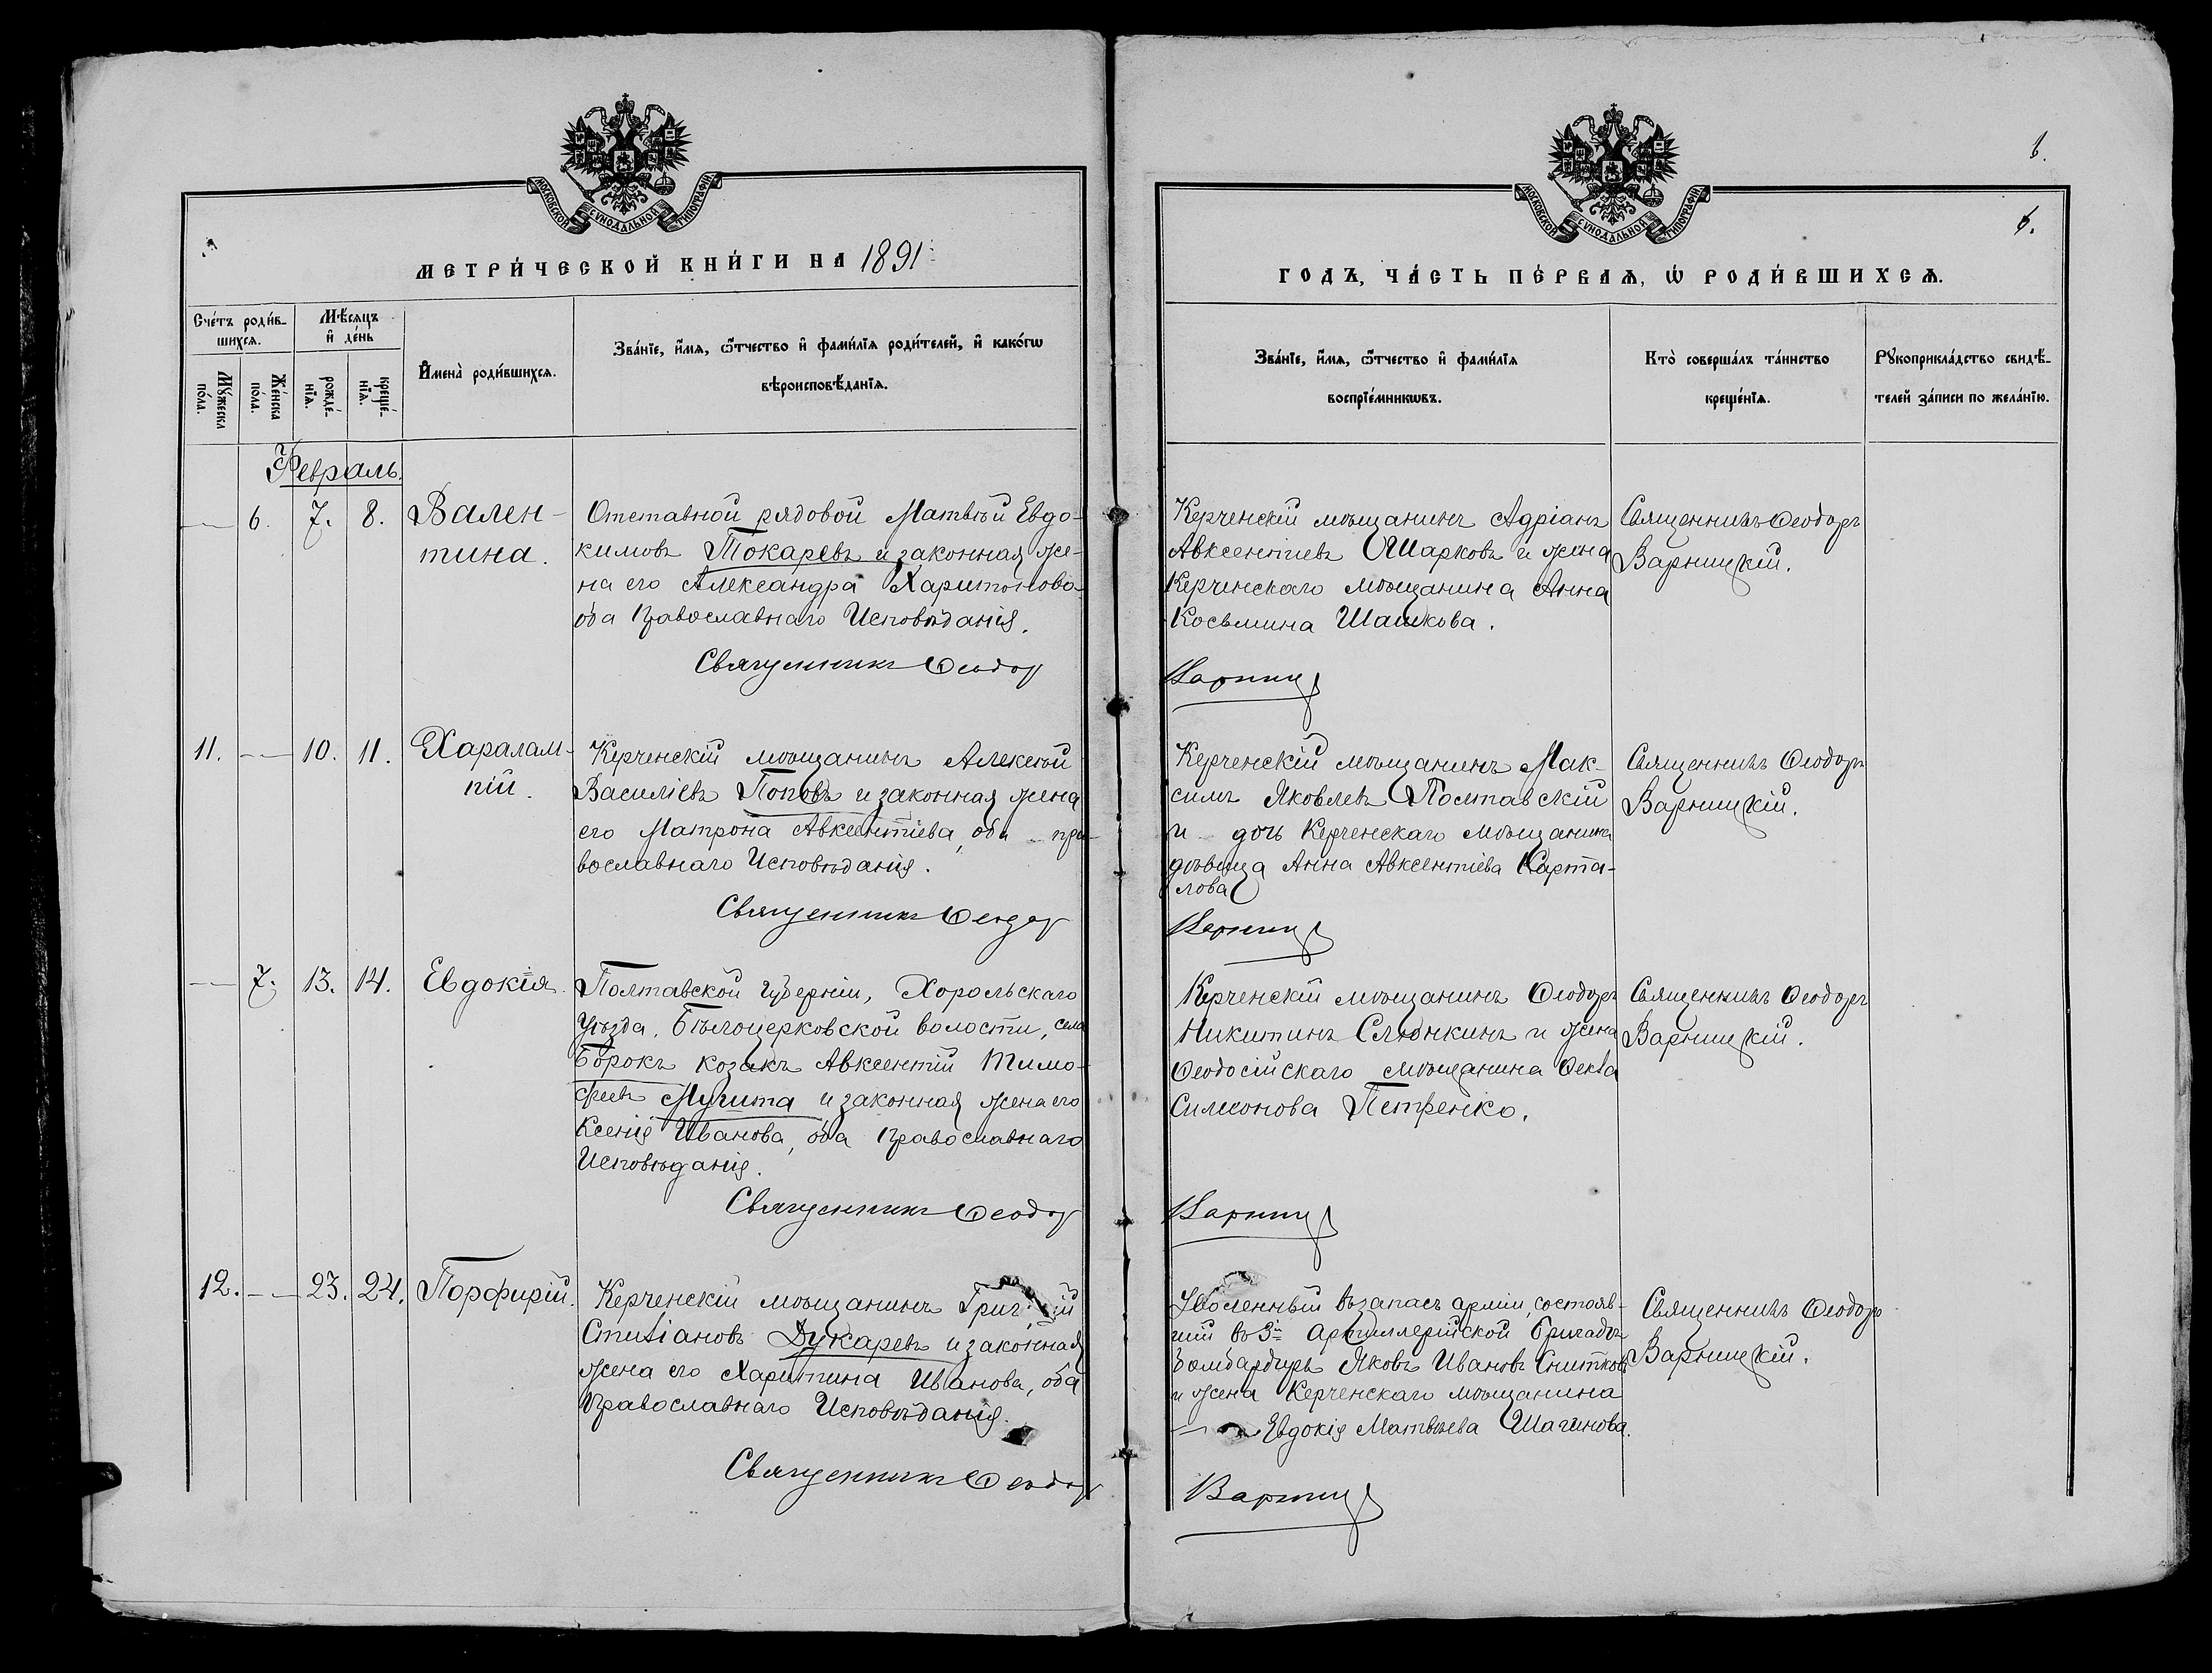 МОСКОВСКОЙ СУНОДАЛЬНОЙ ТИПОГРАФІИ
МЕТРИ́ЧЕСКОЙ КНИ́ГИ НА 1891
Сче́тъ роди́в-
шихся.
Мѣ́сяцъ
и҆ де́нь
Мꙋ́жеска
по́ла.
Же́нска
по́ла.
рожде́-
нїѧ.
креще́-
нїѧ.
И҆мена̀ роди́вшихсѧ.
Зва́нїе, и҆́мѧ, ѻ҆́тчество и҆ фами́лїѧ роди́телей, и҆ како́гѡ
вѣроисповѣ́данїѧ.
Февраль.
— 6. 7. 8. Вален-
тина.
Отставной рядовой Матвѣй Евдо-
кимовъ Токаревъ и законная же-
на его Александра Харитонова
оба Православнаго Исповѣданія.
Священникъ Ѳеодор
11. — 10. 11. Харалам-
пій.
Керченскій мѣщанинъ Алексѣй
Василіевъ Поповъ и законная жена
его Матрона Авксентіева, оба пра-
вославнаго Исповѣданія.
Священникъ Ѳеодор
— 7. 13. 14. Евдокія.
Полтавской губерніи, Хорольскаго
Уѣзда, Бѣлоцерковской волости, села
Борокъ козакъ Авксентій Тимо-
феевъ Мучита и законная жена его
Ксенія Иванова, оба Православнаго
Исповѣданія.
Священникъ Ѳеодор
12. — 23. 24. Порфирій.
Керченскій мѣщанинъ Григ ій
Стиліановъ Дукаревъ и законная
жена его Харитина Иванова, оба
Православнаго Исповѣданія.
Священникъ Ѳеодор
6.
6.
МОСКОВСКОЙ СУНОДАЛЬНОЙ ТИПОГРАФІИ
ГОДЪ, ЧА́СТЬ ПЕ́РВАѦ, Ѡ҆ РОДИ́ВШИХСѦ.
Зва́нїе, и҆́мѧ, ѻ҆́тчество и҆ фами́лїѧ
воспрїе́мникѡвъ.
Кто̀ соверша́лъ та́инство
креще́нїѧ.
Рꙋкоприкла́дство свидѣ́-
телей за́писи по жела́нїю.
Керченскій мѣщанинъ Адріанъ
Авксентіевъ Шарковъ и жена
Керченскаго мѣщанина Анна
Косьмина Шашкова.
Священникъ Ѳеодоръ
Варницкій.
Варниц
Керченскій мѣщанинъ Мак-
симъ Яковлевъ Полтавскій
и дочь Керченскаго мѣщанина
дѣвица Анна Авксентіева Карта-
лова
Священникъ Ѳеодоръ
Варницкій.
Варниц
Керченскій мѣщанинъ Ѳеодоръ
Никитинъ Слюнкинъ и жена
Ѳеодосійскаго мѣщанина Ѳекла
Симеонова Петренко.
Священникъ Ѳеодоръ
Варницкій.
Варниц
Уволенный въ запасъ арміи, состояв-
шій въ 3й Артиллерійской Бригадѣ
Бомбардиръ Яковъ Ивановъ Снитковъ
и жена Керченскаго мѣщанина
— Евдокія Матвѣева Шагинова.
Священникъ Ѳеодоръ
Варницкій.
Варниц